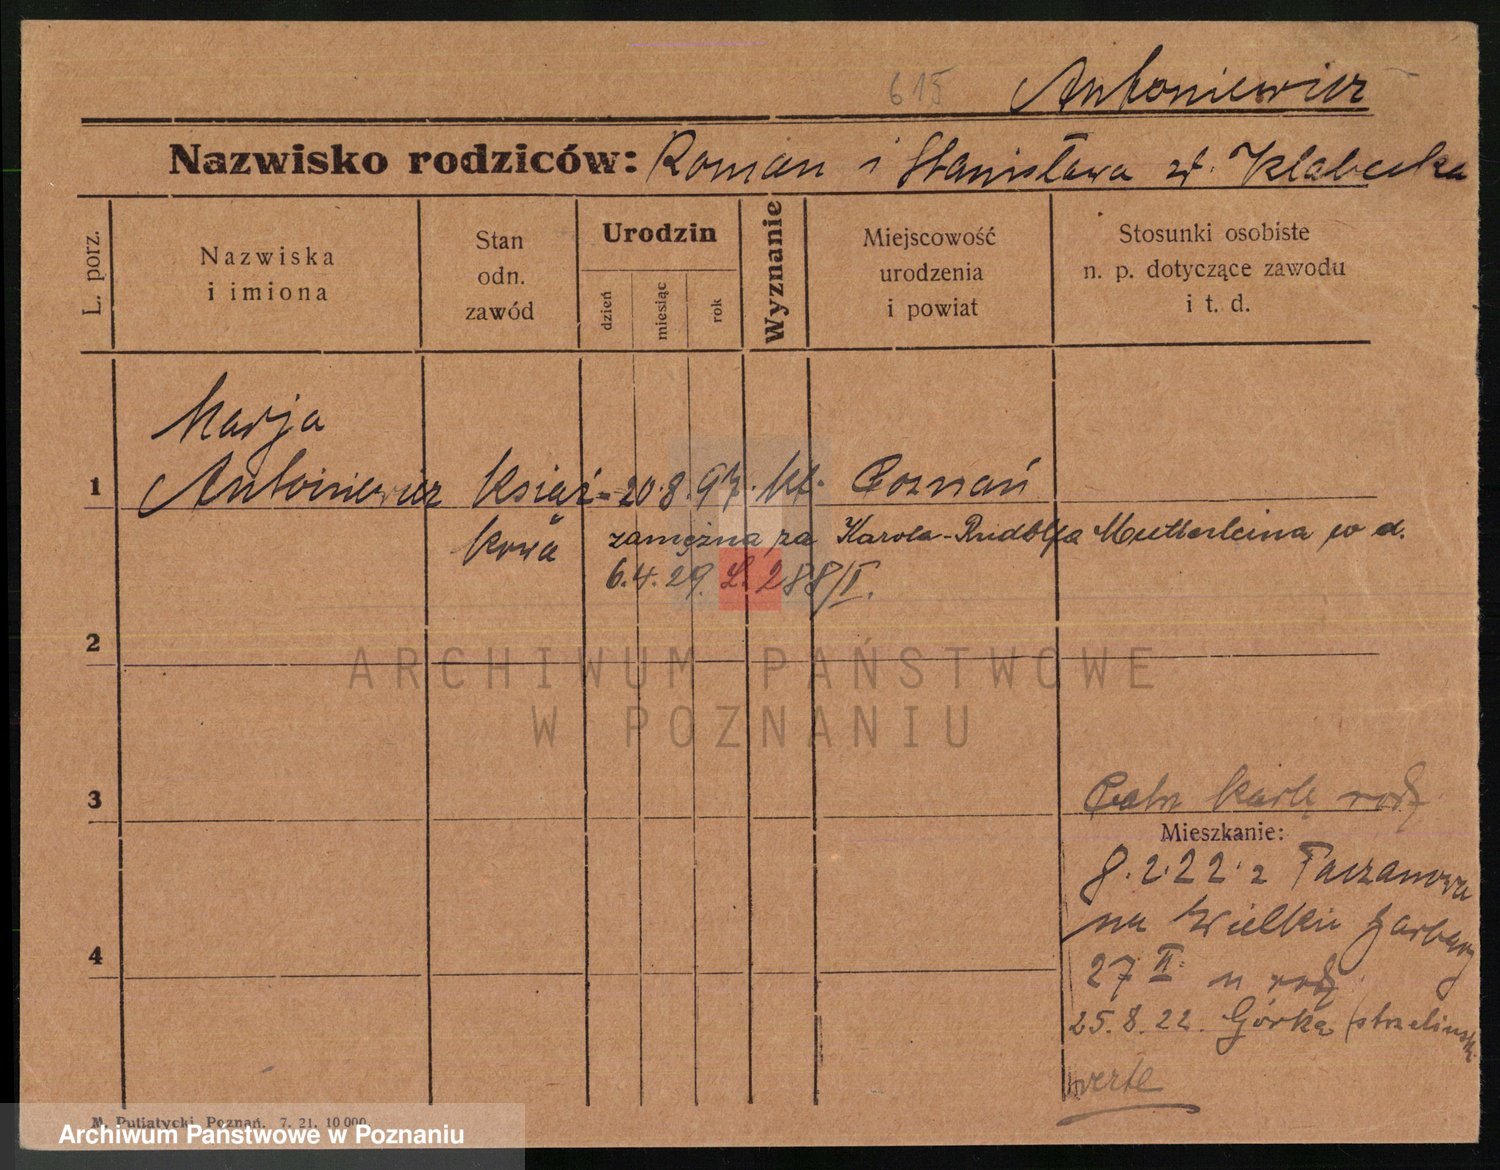 615 Antoniewicz
Nazwisko rodziców: Roman i Stanisława z d. Klabecka
L. porz.
Nazwiska
i imiona
Stan
odn.
zawód
Urodzin
dzień
miesiąc
rok
Wyznanie
Miejscowość
urodzenia
i powiat
Stosunki osobiste
n. p. dotyczące zawodu
i t. d.
Marja
1 Antoniewicz Książ= 20.8.97. kt. Poznań
kowa zamężna za Karola-Rudolfa Mutterleina w d.
6.4.29. L. 288/II.
2
ARCHIWUM PAŃSTWOWE
W POZNANIU
3 kartę rodz
Mieszkanie:
8.2.22. z Taczanowa
na Wielkie Garbary
4
27 II. u rodz
25.8.22. Górka (strzelinsk.
verte
M. Putiatycki, Poznań. 7. 21. 10 000.
Archiwum Państwowe w Poznaniu